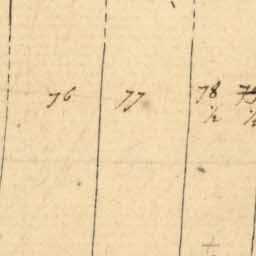 76 77 78
½ ½